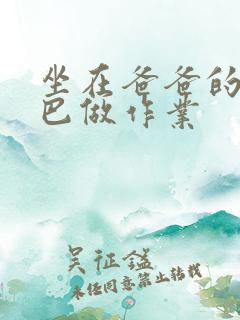 坐在爸爸的
巴做作业
吴征鎰
未经同意禁止转载